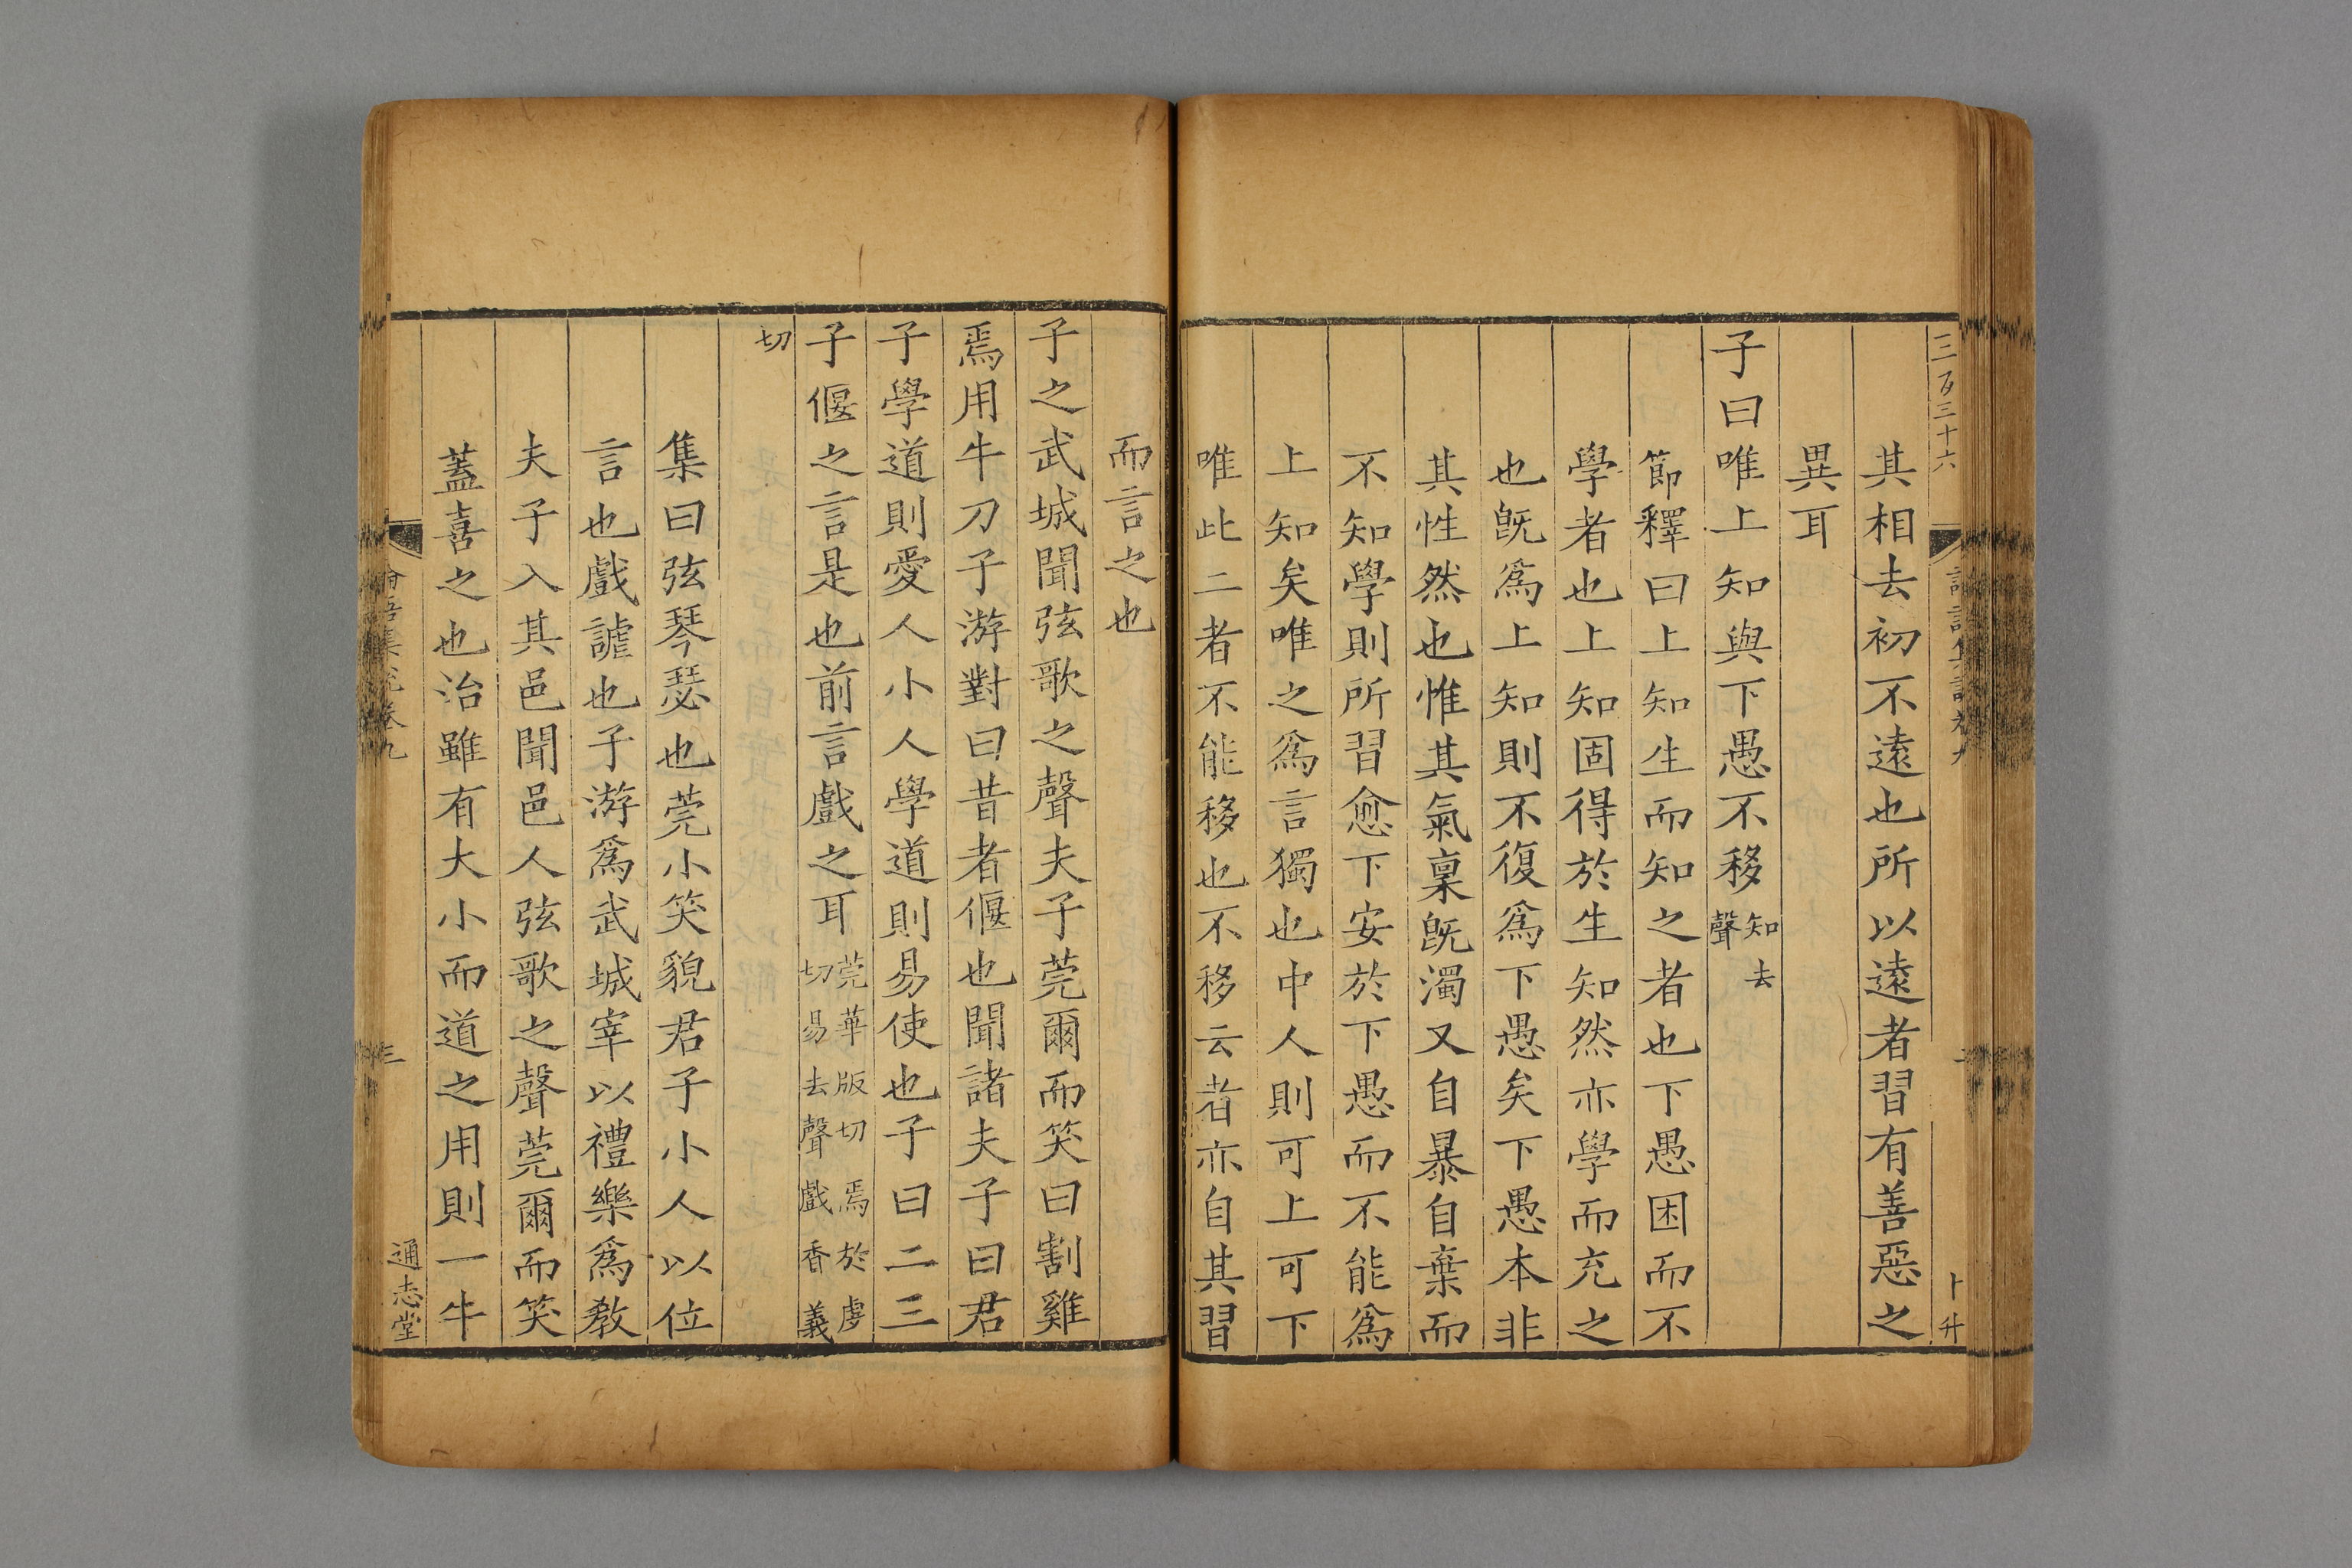 三百三十六
其相去初不遠也所以遠者習有善惡之
異耳
子曰唯上知與下愚不移知去
聲
節釋曰上知生而知之者也下愚困而不
學者也上知固得於生知然亦學而充之
也旣爲上知則不復爲下愚矣下愚本非
其性然也惟其氣稟旣濁又自暴自棄而
不知學則所習愈下安於下愚而不能爲
上知矣唯之爲言獨也中人則可上可下
唯此二者不能移也不移云者亦自其習
而言之也
子之武城聞弦歌之聲夫子莞爾而笑曰割雞
焉用牛刀子游對曰昔者偃也聞諸夫子曰君
子學道則愛人小人學道則易使也子曰二三
子偃之言是也前言戲之耳莞華版切焉於虔
切易去聲戲香義
切
集曰弦琴瑟也莞小笑貌君子小人以位
言也戲謔也子游爲武城宰以禮樂爲教
夫子入其邑聞邑人弦歌之聲莞爾而笑
蓋喜之也治雖有大小而道之用則一牛
三
通志堂